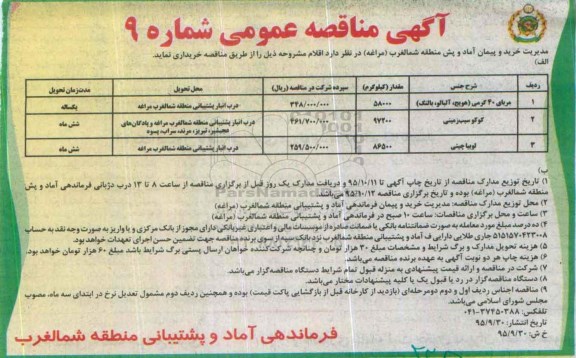 آگهی مناقصه عمومی شماره ۹
مدیریت خرید و پیمان آماد و پش منطقه شمالغرب (مراغه) در نظر دارد اقلام مشروحه ذیل را از طریق مناقصه خریداری نماید.
الف)
ردیف شرح جنس مقدار (کیلوگرم) سپرده شرکت در مناقصه (ریال) محل تحویل مدت زمان تحویل
۱ مربای ۳۰ گرمی (هویج، آلبالو، بالنگ) ۵۸۰۰۰ ۳۴۸/۰۰۰/۰۰۰ درب انبار پشتیبانی منطقه شمالغرب مراغه یکساله
۲ کوکو سیب‌زمینی ۹۷۲۰۰ ۴۶۱/۷۰۰/۰۰۰ درب انبار پشتیبانی منطقه شمالغرب مراغه و پادگان‌های عجبشیر، تبریز، مرند، سراب، پسوه شش ماه
۳ لوبیا چیتی ۸۶۵۰۰ ۲۵۹/۵۰۰/۰۰۰ درب انبار پشتیبانی منطقه شمالغرب مراغه شش ماه
ب)
۱) تاریخ توزیع مدارک مناقصه از تاریخ چاپ آگهی تا ۹۵/۱۰/۱۱ و دریافت مدارک یک روز قبل از برگزاری مناقصه از ساعت ۸ تا ۱۳ درب دژبانی فرماندهی آماد و پش
منطقه شمالغرب (مراغه) بوده و تاریخ برگزاری مناقصه ۹۵/۱۰/۱۲ می‌باشد.
۲) محل توزیع مدارک مناقصه: مدیریت خرید و پیمان فرماندهی آماد و پشتیبانی منطقه شمالغرب (مراغه)
۳) ساعت و محل برگزاری مناقصات: ساعت ۱۰ صبح در فرماندهی آماد و پش شمالغرب (مراغه)
۴) ده درصد مبلغ مورد معامله به صورت ضمانتنامه بانکی یا ضمانت صادره از موسسات مالی و اعتباری غیربانکی دارای مجوز از بانک مرکزی و یا واریز به صورت وجه نقد به حساب
۵۱۵۱۵۷۰۴۲۳۰۰۸ جاری طلایی دارایی ف آماد و پشتیبانی منطقه شمالغرب نزد بانک سپه از سوی برنده مناقصه جهت تضمین حسن اجرای تعهدات خواهد بود.
۵) هزینه تحویل مدارک و برگ شرایط و مشخصات مبلغ ۳۰ هزار تومان و چنانچه شرکت‌کننده خواهان ارسال پستی برگ شرایط باشد مبلغ ۶۰ هزار تومان خواهد بود.
۶) هزینه چاپ هر دو نوبت آگهی به عهده برنده مناقصه می‌باشد.
۷) شرکت در مناقصه و ارائه قیمت پیشنهادی به منزله قبول تمام شرایط دستگاه مناقصه‌گزار می‌باشد.
۸) دستگاه مناقصه‌گزار در رد یا قبول یک یا کلیه پیشنهادات مختار می‌باشد.
۹) مناقصه اجناس ردیف اول و دوم دومرحله‌ای (بازدید از کارخانه قبل از بازگشایی پاکت قیمت) بوده و همچنین ردیف دوم مشمول تعدیل نرخ در ابتدای سه ماه، مصوب
مجلس شورای اسلامی می‌باشد.
تلفکس: ۰۴۱-۳۷۴۵۰۳۸۸
تاریخ انتشار: ۹۵/۹/۳۰
خ ش: ۹۵/۹/۳۰
فرماندهی آماد و پشتیبانی منطقه شمالغرب